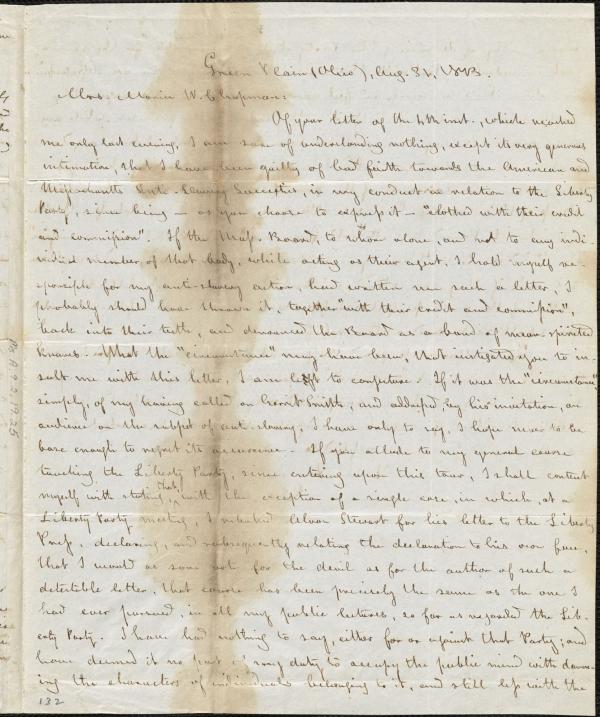 Green Plain (Ohio), Aug. 31, 1843.
Mrs. Maria W. Chapman:
Of your letter of the 4th inst., which reached
me only last evening, I am sure of understanding nothing, except its very generous
intimation, that I have been guilty of bad faith towards the American and
Massachusetts Anti-Slavery Societies, in my conduct in relation to the Liberty
Party, since being — as you choose to express it — "clothed with their credit
and commission". If the Mass. Board, to whom alone, and not to any indi-
vidual member of that body, while acting as their agent, I hold myself re-
sponsible for my anti-slavery action, had written me such a letter, I
probably should have thrown it, together "with their credit and commission",
back into their teeth, and denounced the Board as a band of mean spirited
knaves. What the "circumstances" may have been, that instigated you to in-
sult me with this letter, I am left to conjecture. If it was the "circumstance",
simply, of my having called on Gerrit Smith, and addressed, by his invitation, an
audience on the subject of anti-slavery, I have only to say, I hope never to be
base enough to regret its occurrence. If you allude to my general course
touching the Liberty Party, since entering upon this tour, I shall content
myself with stating, that, with the exception of a single case, in which, at a
Liberty Party meeting, I rebuked Alvan Stewart for his letter to the Liberty
Press, declaring, and subsequently relating the declaration to his own face,
that I would as soon vote for the devil as for the author of such a
detestible letter, that course has been precisely the same as the one I
had ever pursued, in all my public lectures, so far as regarded the Lib-
erty Party. I have had nothing to say, either for or against that Party; and
have deemed it no part of my duty to occupy the public mind with
ing the characters of individuals belonging to it, and still less with the
132